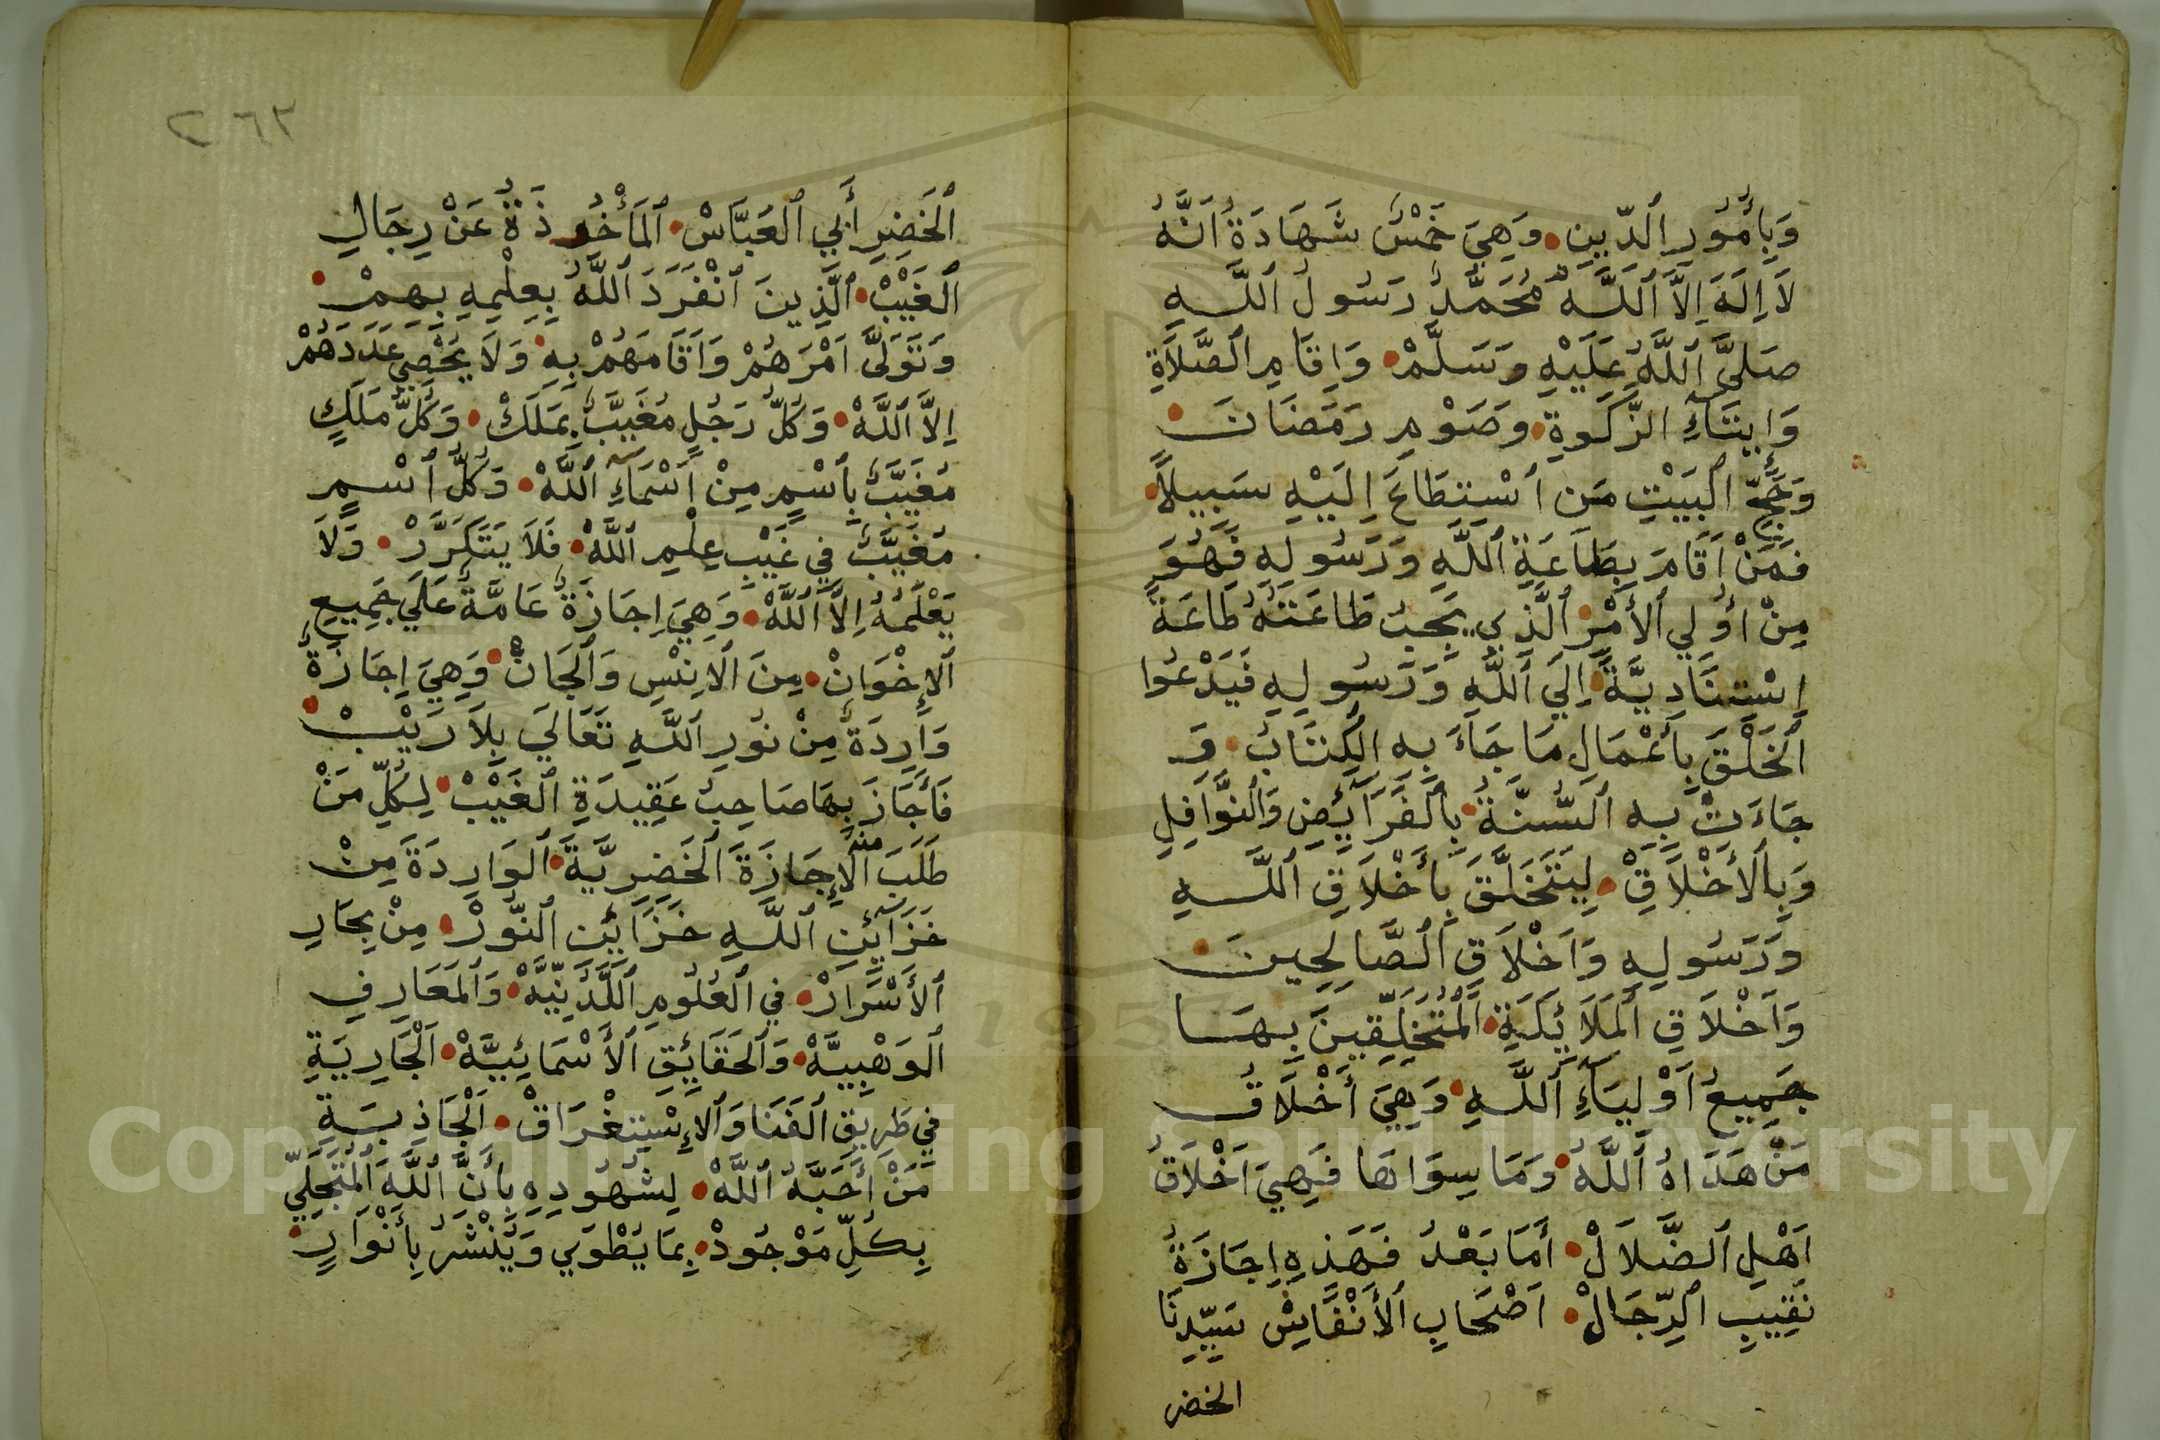 وَبِأُمُورِ الدِّينِ • وَهِيَ خَمْسٌ شَهَادَةُ اَنَّهُ
لاَ اِلَهَ اِلاَّ اَللَّهُ مُحَمَّدٌ رَسُولُ اَللَّهِ
صَلَّى اَللَّهُ عَلَيْهِ وَسَلَّمْ • وَاِقَامِ الصَّلاَةِ
وَاِيتَآءِ الزَّكَوةِ • وَصَوْمِ رَمَضَانَ •
وَحَجِّ الْبَيْتِ مَنِ اسْتِطَاعَ اِلَيْهِ سَبِيلاً •
فَمَنْ اَقَامَ بِطَاعَةِ اَللَّهِ وَرَسُولِهِ فَهُوَ
مِنْ اُولِي الأَمْرِ • الَّذِي يَجِبُ طَاعَتَهُ طَاعَةً
اِسْتِنَادِيَّةً • اِلَى اَللَّهِ وَرَسُولِهِ فَيَدْعُوا
الْخَلْقَ بِأَعْمَالِ مَا جَآءَ بِهِ الكِتَابُ • وَ
جَاءَتْ بِهِ السُّنَّةُ • بِالْفَرَآئِضِ وَالنَّوَافِلِ
وَبِالأَخْلاَقْ • لِيَتَخَلَّقَ بِأَخْلاَقِ اللَّهِ
وَرَسُولِهِ وَاَخْلاَقِ الصَّالِحِينَ •
وَاَخْلاَقِ الْمَلاَئِكَةِ • الْمُتَخَلِّقِينَ بِهَا
جَمِيعُ اَوْلِيَآءِ اَللَّهِ • وَهِيَ أَخْلاَقُ
مَنْ هَدَاهُ اَللَّهُ • وَمَا سِوَاهَا فَهِيَ اَخْلاَقُ
اَهْلِ الضَّلاَلْ • أَمَا بَعْدُ فَهَذِهِ اِجَازَةُ
نَقِيبِ الرِّجَالْ • اَصْحَابِ الأَنْفَاسْ سَيِّدِنَا
الخضر
٢٦٣
الْخَضِرِ أَبِي الْعَبَّاسْ • الْمَأْخُوذَةُ عَنْ رِجَالِ
الْغَيْبْ • الَّذِينَ انْفَرَدَ اللَّهُ بِعِلْمِهِ بِهِمْ •
وَتَوَلَّى اَمْرَهُمْ وَاَقَامَهُمْ بِهِ • وَلاَ يُحْصِي عَدَدَهُمْ
اِلاَّ اللَّهْ • وَكُلُّ رَجُلٍ مُغَيَّبٌ بِمَلَكْ • وَكُلُّ مَلَكٍ
مُغَيَّبٌ بِاسْمٍ مِنْ اَسْمَآءِ اللَّهْ • وَكُلُّ اسْمٍ
مُغَيَّبٌ فِي غَيْبِ عِلْمِ اللَّهْ • فَلاَ يَتَكَرَّرْ • وَلاَ
يَعْلَمُهُ اِلاَّ اللَّهْ • وَهِيَ اِجَازَةٌ عَامَّةٌ عَلَي جَمِيعِ
الإِخْوَانْ • مِنَ الاِنْسِ وَالْجَانّْ • وَهِيَ اِجَازَةٌ
وَارِدَةٌ مِنْ نُورِ اللَّهِ تَعَالَي بِلاَ رَيْبْ •
فَأَجَازَ بِهَا صَاحِبُ عَقِيدَةِ الْغَيْبْ • لِكُلِّ مَنْ
طَلَبَ مِنْهُ الإِجَازَةَ الْخَضِرِيَّةَ • الوَارِدَةَ مِنْ
خَزَآئِنِ اللَّهِ خَزَآئِنِ النُّورْ • مِنْ بِحَارِ
الأَسْرَارْ • فِي الْعُلُومِ اللَّدُنِّيَّهْ • وَالْمَعَارِفِ
الْوَهْبِيَّهْ • وَالْحَقَائِقِ الأَسْمَائِيَّهْ • الْجَارِيَةِ
فِي طَرِيقِ الْفَنَا وَالإِسْتِغْرَاقْ • الْجَاذِبَةِ
مَنْ أَحَبَّهُ اللَّهْ • لِشُهُودِهِ بِأَنَّ اللَّهَ الْمُتَجَلِّيْ
بِكُلِّ مَوْجُودْ • بِمَا يُطْوَي وَيُنْشَرُ بِأَنْوَارٍ •
Copyright © King Saud University
1957